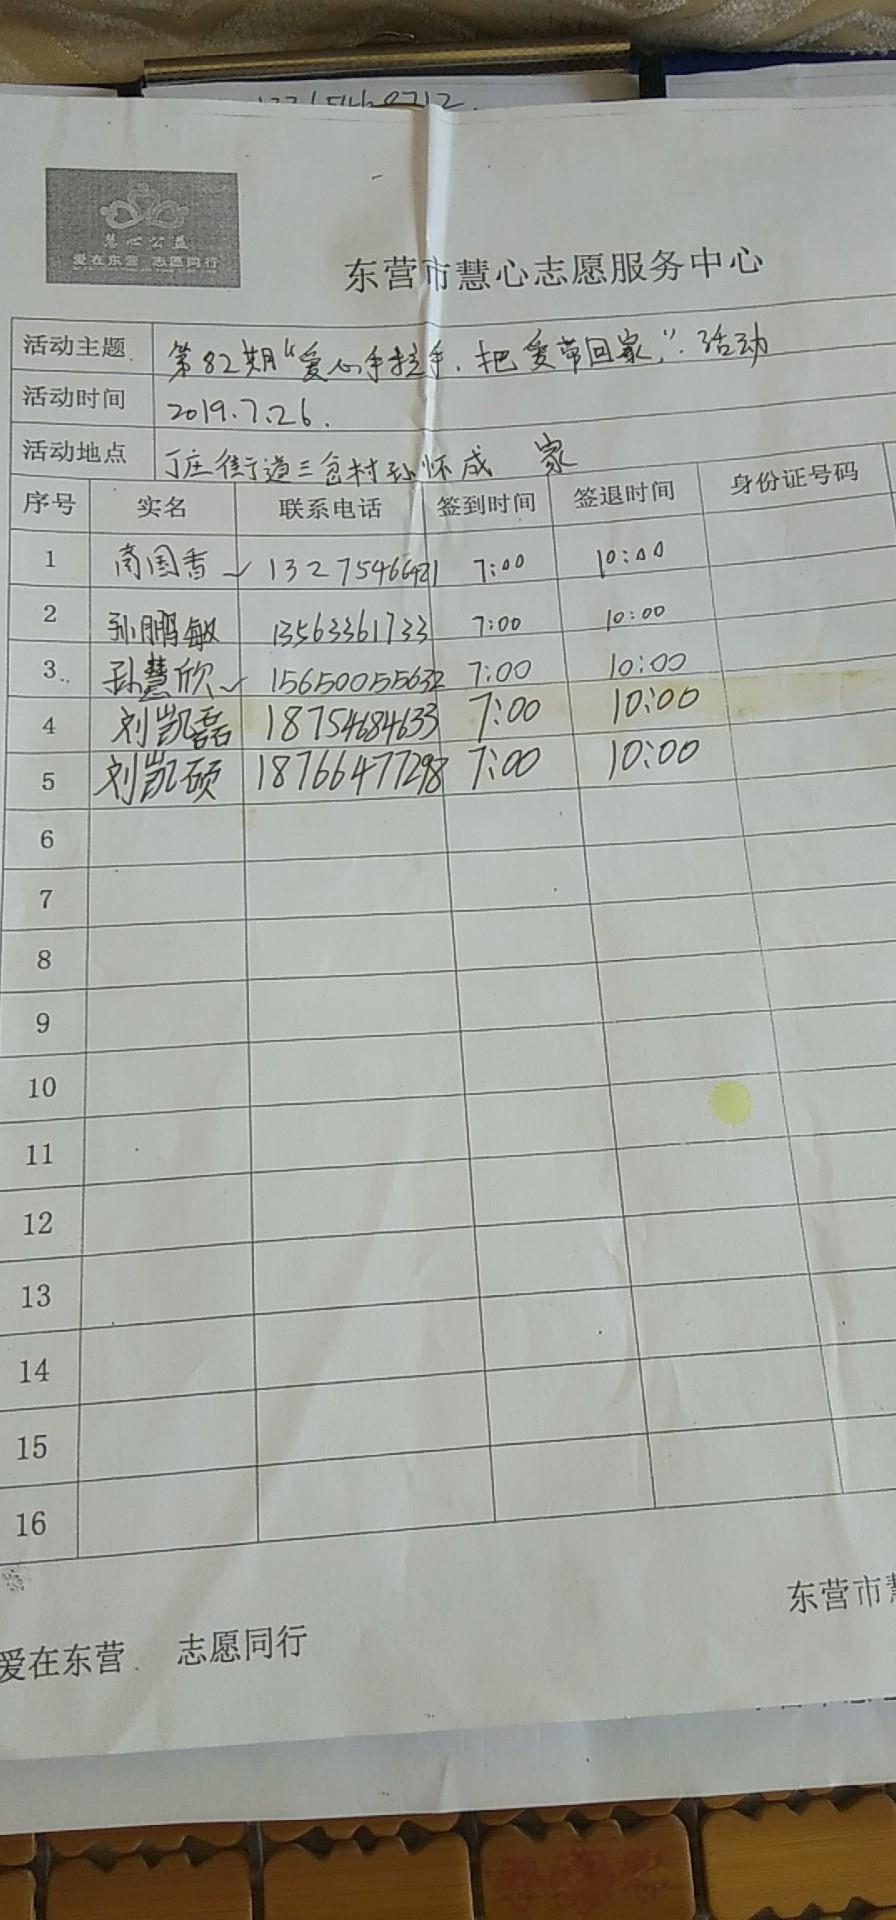 慧心公益
爱在东营 志愿同行
东营市慧心志愿服务中心
活动主题 第82期“爱心手拉手,把爱带回家”活动
活动时间 2019.7.26.
活动地点 丁庄街道三岔村孙怀成 家
序号 实名 联系电话 签到时间 签退时间 身份证号码
1 国香 7:00 10:00
2 孙鹏敏 13563361733 7:00 10:00
3.. 孙慧欣 15650055632 7:00 10:00
4 刘凯磊 18754684633 7:00 10:00
5 刘凯硕 18766477298 7:00 10:00
6
7
8
9
10
11
12
13
14
15
16
东营市慧
爱在东营 志愿同行